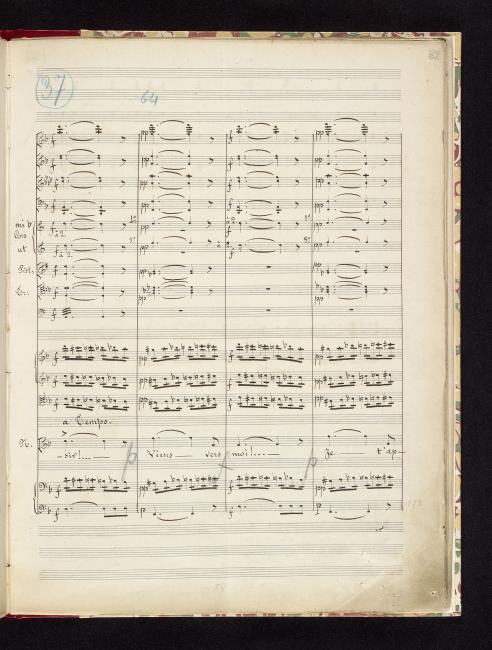 37
64
mi b
Cors
ut
Pist.
a Tempo.
N.
- sir!... — Viens — vers moi!... — Je — t'ap-